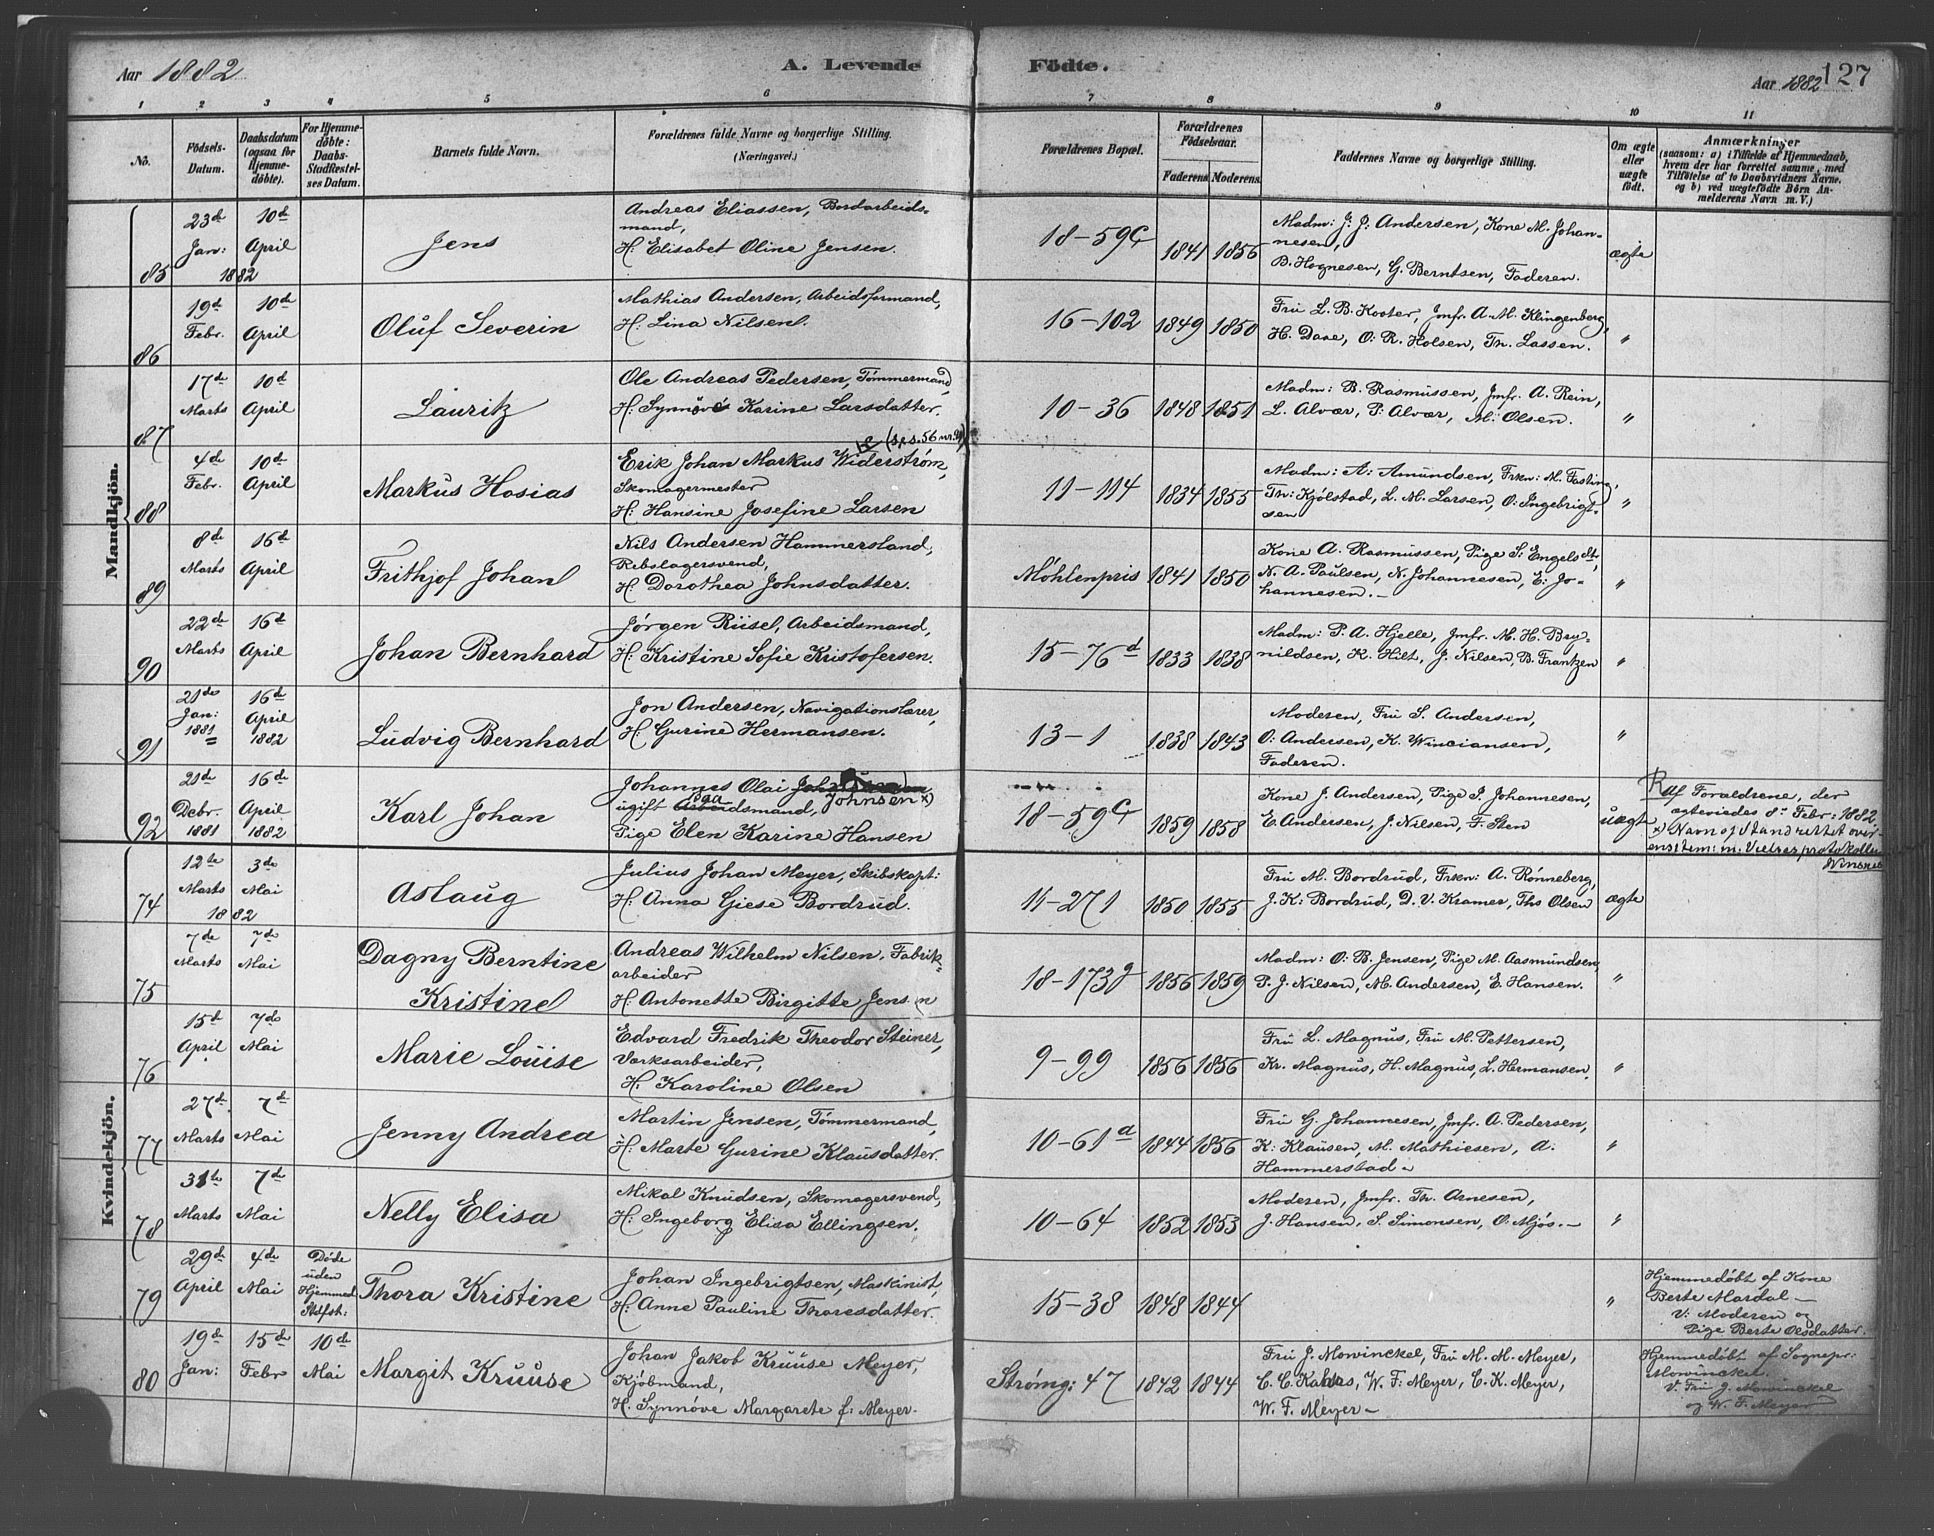 Aar 1882
A. Levende Födte.
Aar 1882 127
1 2 3 4 5 6 7 8 9 10 11
No.
Födsels-Datum.
Daabsdatum (ogsaa for Hjemme-döbte).
For Hjemme-döbte: Daabs-Stadfæstel-ses Datum.
Barnets fulde Navn.
Forældrenes fulde Navne og borgerlige Stilling. (Næringsvei.)
Forældrenes Bopæl.
Forældrenes Födselsaar.
Faderens. Moderens.
Faddernes Navne og borgerlige Stilling.
Om ægte eller uægte födt.
Anmærkninger
(saasom: a) i Tilfælde af Hjemmedaab,
hvem der har forrettet samme, med
Tilföielse af to Daabsvidners Navne.
og b) ved uægtefödte Börn An-
melderens Navn m. V.)
Mandkjön.
85 23de Jan: 1882 10de April Jens
Andreas Eliassen, Bordarbeids-
mand,
H: Elisabet Oline Jensen.
18-59c 1841 1856
Madm: J. J. Andersen, Kone M. Johan-
nesen,
B. Hognesen, G. Berntsen, Faderen.
ægte
86 19de Febr. 10de April Oluf Severin
Mathias Andersen, Arbeidsformand,
H: Lina Nilsen.
16-102 1849 1850
Fru L. B. Kooter, Jmfr. A. M. Klingenberg,
H. Daae, O. R. Holsen, Th. Lassen.
"
87 17de Marts 10de April Lauritz
Ole Andreas Pedersen, Tömmermand,
H: Synnöve Karine Larsdatter.
10-36 1848 1851
Madm: B. Rasmussen, Jmfr. A. Rein,
L. Alvær, P. Alvær, M. Olsen.
"
88 4de Febr. 10de April Markus Hosias
Erik Johan Markus Widerström,
Skomagermester
H: Hansine Josefine Larsen
11-114 1834 1855
Madm: A: Amundsen, Frkn: M. Fasting,
Th: Kjölstad, L. M. Larsen, O: Ingebrigt-
sen
"
89 8de Marts 16de April Frithjof Johan
Nils Andersen Hammersland,
Rebslagersvend,
H: Dorothea Johnsdatter.
Möhlenpris 1841 1850
Kone A. Rasmussen, Pige S: Engelsdtr,
N. A. Paulsen, N. Johannesen, E: Jo-
hannesen.
"
90 22de Marts 16de April Johan Bernhard
Jörgen Riisel, Arbeidsmand,
H: Kristine Sofie Kristofersen.
15-76d 1833 1838
Madm: P. A. Hjelle, Jmfr. M. H. Bry-
nildsen, K. Hilt, J. Nilsen, B. Frantzen
"
91 21de Jan: 1881 16de April 1882 Ludvig Bernhard
Jon Andersen, Navigationslærer,
H: Gurine Hermansen.
13-1 1838 1843
Moderen, Fru S. Andersen,
O: Andersen, K. Winciansen,
Faderen.
"
92 21de Debr. 1881 16de April 1882 Karl Johan
Johannes Olai Johnsen x)
ugift
Pige Elen Karine Hansen
18-59c 1859 1858
Kone J. Andersen, Pige J. Johannesen,
E. Andersen, J. Nilsen, F. Sten
uægte
Af Forældrene, der
ægteviedes 8de Febr: 1882
x) Navn og Stand rettet over-
ensstem: m. Vielsesprotokollen
Winsnes
Kvindekjön.
74 12te Marts 1882 3de Mai Aslaug
Julius Johan Meyer, Skibskapt:
H: Anna Giese Bordrud.
11-271 1850 1855
Fru M. Bordrud, Frkn: A. Rönneberg,
J. K: Bordrud, D. V. Kramer, Ths Olsen
ægte
75 7de Marts 7de Mai Dagny Berntine
Kristine
Andreas Wilhelm Nilsen, Fabrik-
arbeider
H: Antonette Birgitte Jensen
18-173g 1856 1859
Madm: O. B. Jensen, Pige M. Aasmundsen,
P. J. Nilsen, M. Andersen, E. Hansen.
"
76 15de April 7de Mai Marie Louise
Edvard Fredrik Theodor Steiner,
Værksarbeider,
H: Karoline Olsen
9-99 1856 1856
Fru L. Magnus, Fru M. Pettersen,
Kr. Magnus, H. Magnus, L. Hermansen.
"
77 27de Marts 7de Mai Jenny Andrea
Martin Jensen, Tömmermand,
H: Marte Gurine Klausdatter.
10-61a 1844 1856
Fru G. Johannesen, Jmfr. A. Pedersen,
K: Klausen, M. Mathiesen, A:
Hammerstad
"
78 31te Marts 7de Mai Nelly Elisa
Mikal Knudsen, Skomagersvend,
H: Ingeborg Elisa Ellingsen.
10-64 1852 1853
Moderen, Jmfr. Th. Arnesen,
J. Hansen, S. Simonsen, O. Mjös.
"
79 29de April 4de Mai Döde uden Hjemmed. Stdfst: Thora Kristine
Johan Ingebrigtsen, Maskinist,
H: Anne Pauline Thoresdatter.
15-38 1848 1844
"
Hjemmedöbt af Kone
Berte Mardal
V: Moderen og
Pige Berte Olsdatter.
80 19de Jan: 15de Febr 10de Mai Margit Kruuse
Johan Jakob Kruuse Meyer,
Kjöbmand,
H. Synnöve Margarete f: Meyer.
Strömg: 47 1842 1844
Fru J. Mowinckel, Fru M. M. Meyer,
C. C. Kahrs, W. F. Meyer, C. K. Meyer,
W. F. Meyer
Hjemmedöbt af Sognepr:
Mowinckel.
V. Fru J. Mowinckel
og W. F. Meyer